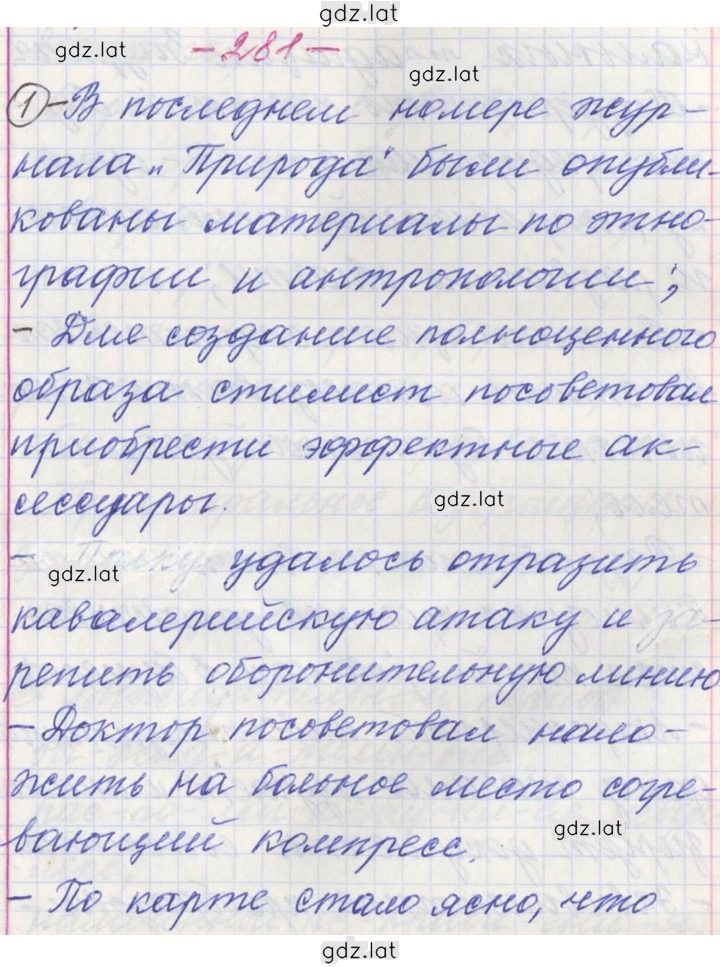 gdz.lat
gdz.lat
- 281 -
gdz.lat
① - В последнем номере жур-
нала „Природа" были опубли-
кованы материалы по этно-
графии и антропологии;
- Для создание полноценного
образа стилист посоветовал
приобрести эффектные ак-
сессуары.
gdz.lat
- Полку удалось отразить
gdz.lat
кавалерийскую атаку и за-
репить оборонительную линию
- Доктор посоветовал нало-
жить на больное место согре-
вающий компресс.
gdz.lat
- По карте стало ясно, что
gdz.lat